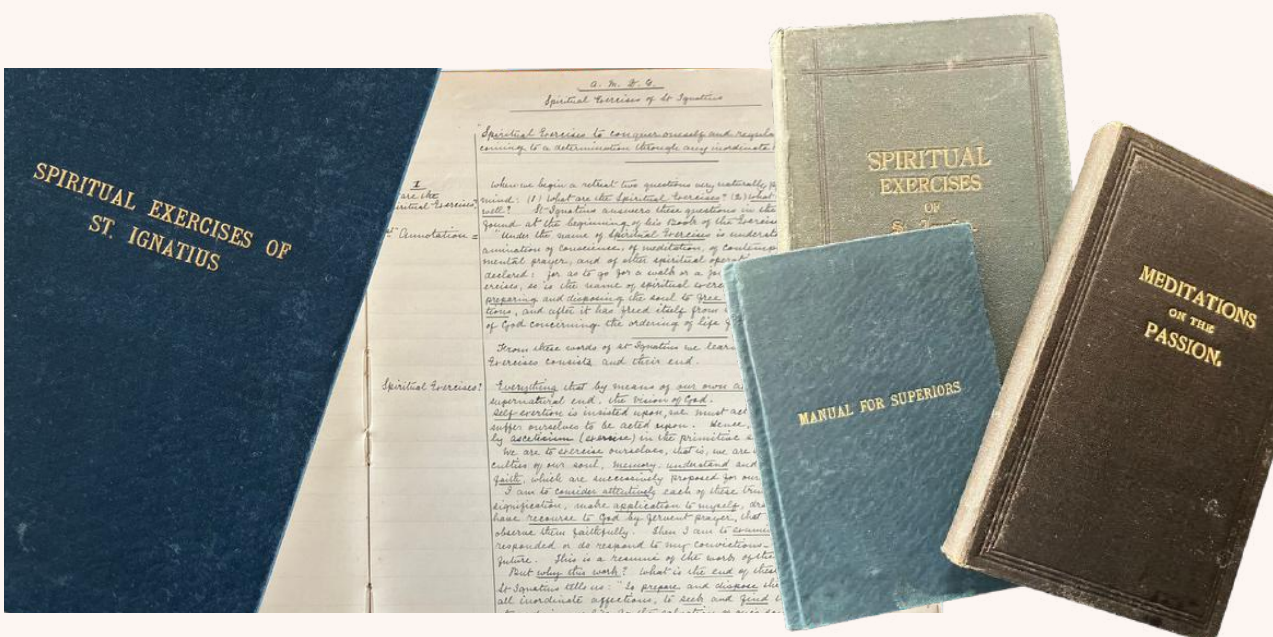 SPIRITUAL EXERCISES OF
ST. IGNATIUS
A. M. D. G.
Spiritual Exercises of St Ignatius
"Spiritual Exercises to conquer oneself and regula
coming to a determination through any inordinate
I
are the
iritual Exercises?
When we begin a retreat two questions very naturally p
mind: (1) What are the Spiritual Exercises? (2) What
well? St Ignatius answers these questions in the
found at the beginning of his Book of the Exercise
Annotation =
"Under the name of Spiritual Exercises is underst
amination of conscience, of meditation, of contemp
mental prayer, and of other spiritual operat
declared: for as to go for a walk or a jo
ercises, so is the name of spiritual exerc
preparing and disposing the soul to free
tions, and after it has freed itself from
of God concerning the ordering of life
From these words of St Ignatius we lear
Exercises consists and their end.
Spiritual Exercises?
Everything that by means of our own a
supernatural end, the vision of God.
Self-exertion is insisted upon, we must act
suffer ourselves to be acted upon. Hence,
by asceticism (exercise) in the primitive s
We are to exercise ourselves, that is, we are
culties of our soul, memory, understand and
faith, which are successively proposed for our
I am to consider attentively each of these tru
signification, make application to myself, dra
have recourse to God by fervent prayer, that
observe them faithfully. Then I am to exami
responded or do respond to my convictions
future. This is a resumé of the work of the
But why this work? What is the end of thes
St Ignatius tells us: "To prepare and dispose the
all inordinate affections, to seek and find
SPIRITUAL
EXERCISES
OF
MANUAL FOR SUPERIORS
MEDITATIONS
ON THE
PASSION.